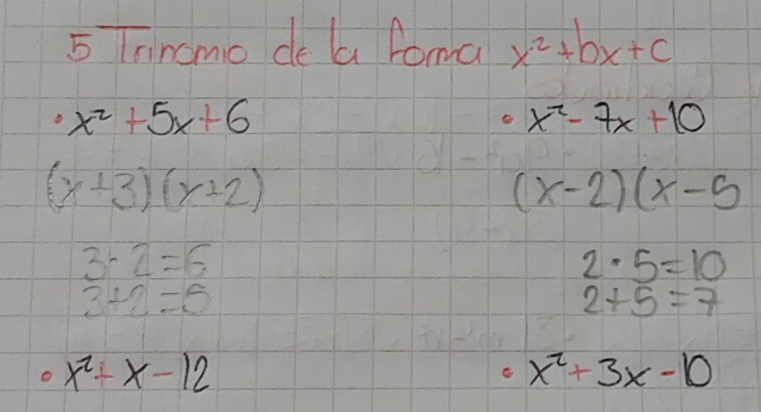 5 Trinomio de la forma x²+bx+c
• x² + 5x + 6
(x+3)(x+2)
3·2=6
3+2=5
• x² - 7x + 10
(x-2)(x-5
2·5=10
2+5=7
• x² + x - 12
• x² + 3x - 10